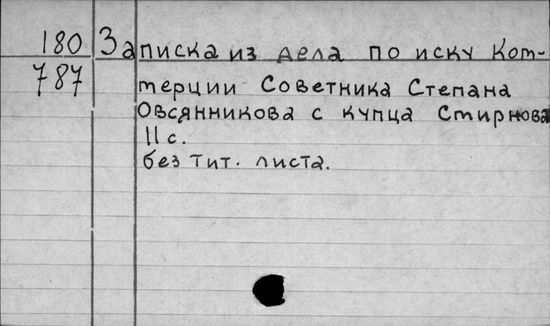 180 Записка из дела по иску Ком-
787 мерции Советника Степана
Овсянникова с купца Смирнова
11 с.
без тит. листа.